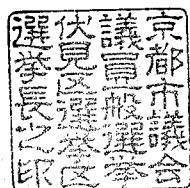 京都市議会
議員一般選挙
伏見区選挙区
選挙長之印